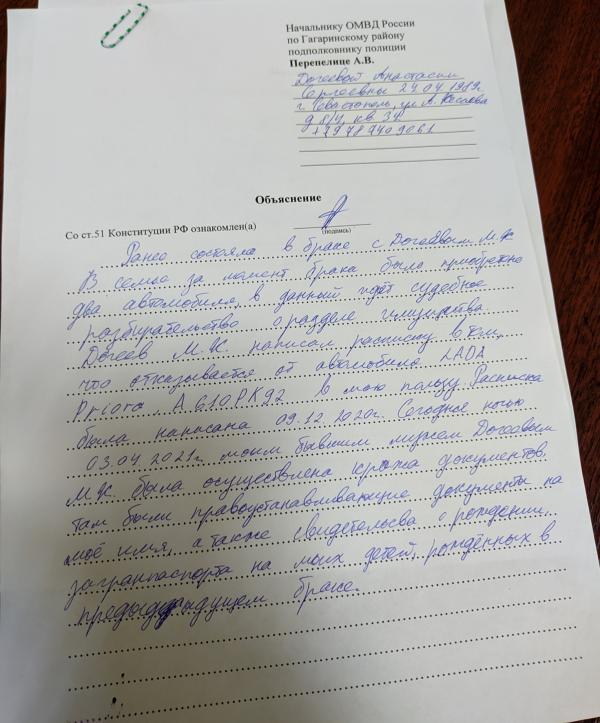 Начальнику ОМВД России
по Гагаринскому району
подполковнику полиции
Перепелице А.В.
Догеевой Анастасии
Сергеевны 24.04.1989г.
г. Севастополь, ул А. Кесаева
д 8/4, кв 34
Объяснение
Со ст.51 Конституции РФ ознакомлен(а)
(подпись)
Ранее состояла в браке с Догеевым М.К
В семье за момент брака было приобретено
два автомобиля, в данный идёт судебное
разбирательство о разделе имущества
Догеев М.К. написал расписку в том,
что отказывается от автомобиля LADA
Priora, А 610 РК92 в мою пользу. Расписка
была написана 09.12.2020г. Сегодня ночью
03.04.2021г. моим бывшим мужем Догеевым
М.К. была осуществлена кража документов.
там были правоустанавливающие документы на
моё имя, а также свидетельсва о рождении,
загранпаспорта на моих детей, рождённых в
браке.